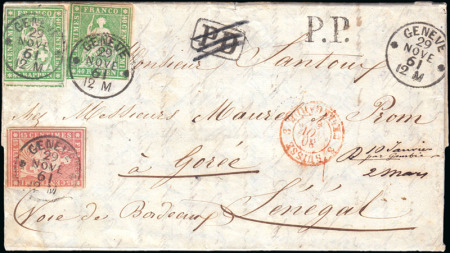 FRANCO
RAPPEN
GENEVE
29
NOVE
61
12 M
FRANCO
GENEVE
29
NOVE
61
12 M
P.D
P.P.
GENEVE
29
NOVE
61
12 M
Monsieur Santouy
chez Messieurs Maurel Prom
à Gorée
SUISSE
R 10 Janvier
par Gambie
2 mars
Sénégal
Voie de Bordeaux
GENEVE
29
NOVE
61
12 M